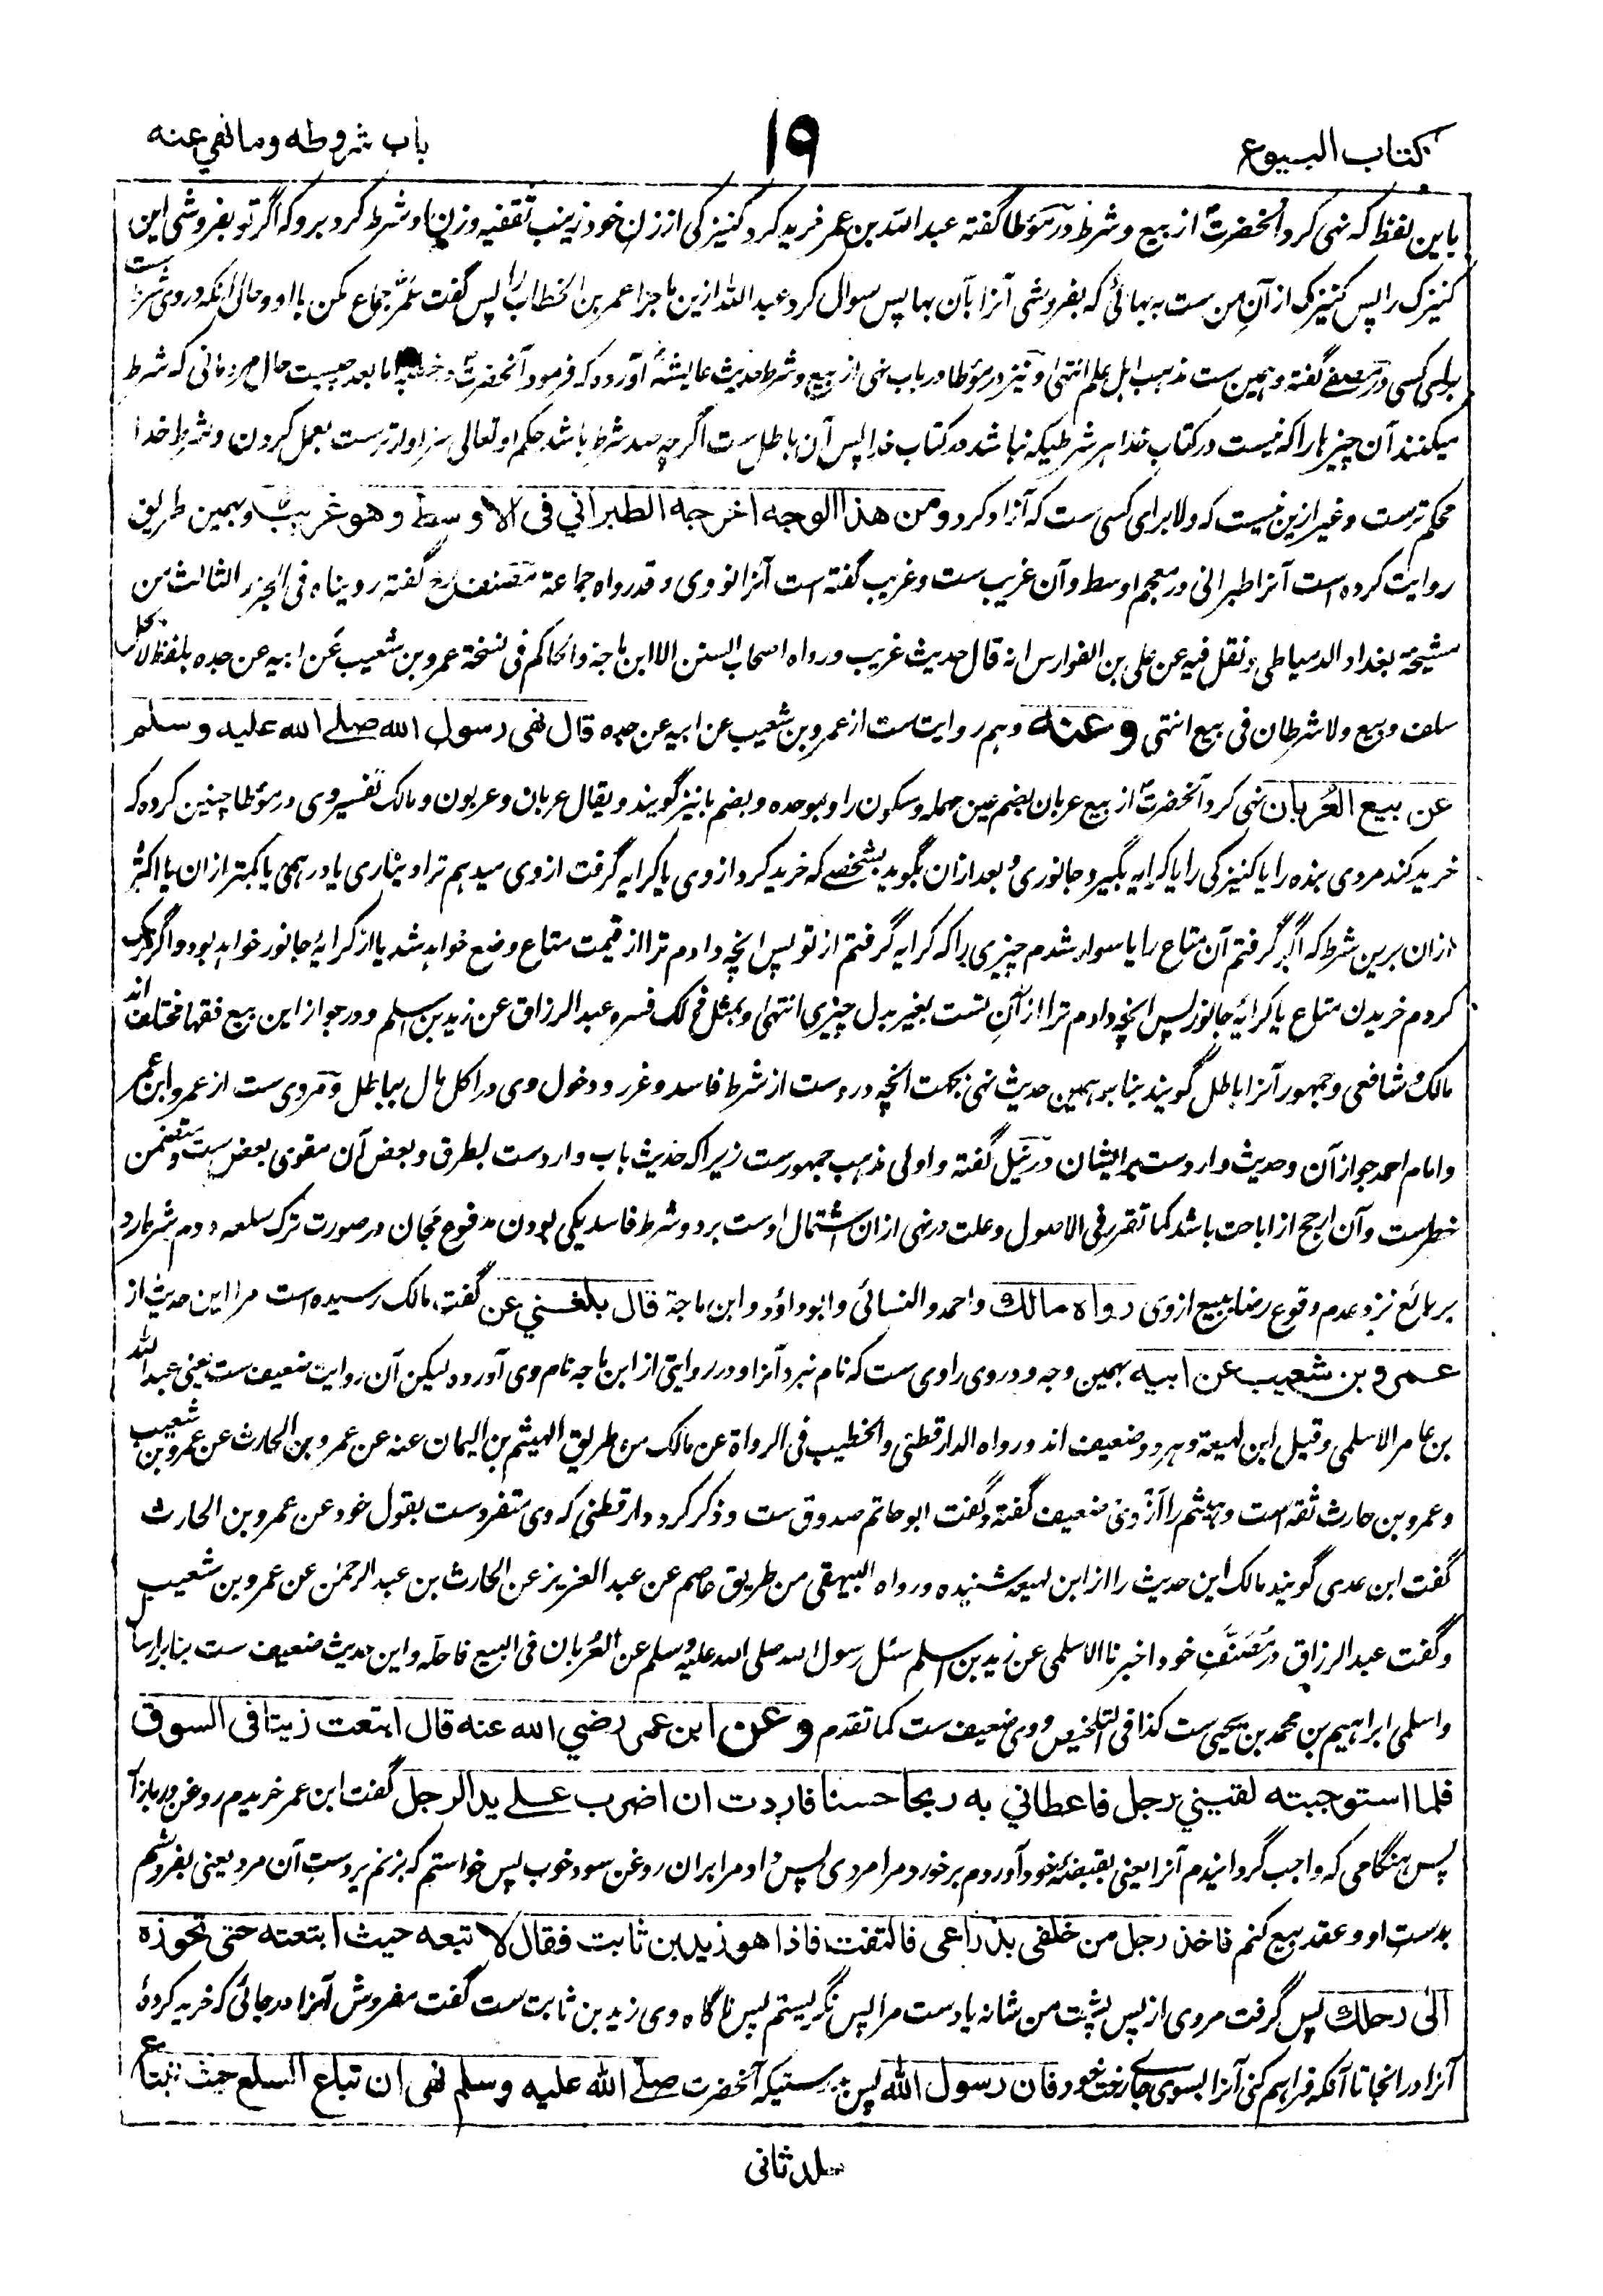 کتاب البیوع
۱۹
باب شروطه وما نهي عنه
باین لفظ که نهی کرد آنحضرتؐ از بیع و شرط در مؤطا گفته عبد الله بن عمر فرید کرد کنیزکی از زن خود زینب ثقفیه و زن او شرط کرد برو که اگر تو بفروشی این
کنیزک را پس کنیزک از آنِ من ست به بهائی که بفروشی آنرا بآن بها پس سوال کرد عبد الله ازین ماجرا عمر بن الخطاب را پس گفت عمرؓ جماع مکن با او و حال آنکه در وی شرط ست
برای کسی در مصفے گفته و همین ست مذهب اهل علم انتهی و نیز در مؤطا در باب نهی از بیع و شرط حدیث عایشهؓ آورده که فرمود آنحضرتؐ در خطبه اما بعد چیست حال مردمانی که شرط
میکنند آن چیزها را که نیست در کتاب خدا هر شرطیکه نباشد در کتاب خدا پس آن باطل ست اگرچه صد شرط باشد حکم او تعالی سزاوارترست بعمل کردن و شرط خدا
محکم ترست و غیر ازین نیست که ولا برای کسی ست که آزاد کرد ومن هذا الوجه اخرجه الطبراني فی الاوسط وهو غریب و بهمین طریق
روایت کرده است آنرا طبرانی در معجم اوسط و آن غریب ست و غریب گفته است آنرا نووی و قد رواه جماعة مصنف رح گفته رویناه فی الجزء الثالث من
مشیخة بغداد الدمیاطی و نقل فیه عن علی بن الفوارس انه قال حدیث غریب و رواه اصحاب السنن الا ابن ماجة والحاکم فی نسخة عمرو بن شعیب عن ابیه عن جده بلفظ لا یحل
سلف و بیع ولا شرطان فی بیع انتهی وعنه و هم روایت ست از عمرو بن شعیب عن ابیه عن جده قال نهى رسول الله صلے الله علیه وسلم
عن بیع العُربان نهی کرد آنحضرتؐ از بیع عربان بضم عین مهمله و سکون را و بموحده و بضم با نیز گویند و یقال عربان و عربون و مالک تفسیر وی در مؤطا چنین کرده که
خرید کند مردی بنده را یا کنیزکی را یا کرایه بگیرد جانوری و بعد ازان بگوید بشخصے که خرید کرد از وی یا کرایه گرفت از وی میدهم ترا دیناری یا درهمی یا کمتر ازان یا اکثر
ازان برین شرط که اگر گرفتم آن متاع را یا سوار شدم چیزی را که کرایه گرفتم از تو پس انچه دادم ترا از قیمت متاع وضع خواهد شد یا از کرایۀ جانور خواهد بود و اگر ترک
کردم خریدن متاع یا کرایۀ جانور پس انچه دادم ترا از آنِ تست بغیر بدل چیزی انتهی و بمثل ذلک فسره عبد الرزاق عن زید بن اسلم و در جواز این بیع فقها مختلف اند
مالک و شافعی و جمهور آنرا باطل گویند بنابر همین حدیث نهی بجهت انچه دروست از شرط فاسد و غرر و دخول وی در اکل مال بباطل و مروی ست از عمر و ابن عمر
و امام احمد جواز آن و حدیث وارد ست بر ایشان در نیل گفته و اولی مذهب جمهورست زیرا که حدیث باب وارد ست بطرق و بعض آن مقوی بعض ست و متضمن
خطرست و آن ارجح از اباحت باشد کما تقرر فی الاصول و علت در نهی ازان اشتمال اوست بر دو شرط فاسد یکی بودن مدفوع مجان در صورت ترک سلعه و دوم شرط رد
بر بائع نزد عدم وقوع رضا ببیع از وی رواه مالك و احمد و النسائی و ابو داؤد و ابن ماجة قال بلغني عن گفته مالک رسیده است مرا این حدیث از
عمرو بن شعیب عن ابیه بهمین وجه و در وی راوی ست که نام نبرد آنرا و در روایتی از ابن ماجه نام وی آورده لیکن آن روایت ضعیف ست یعنی عبد الله
بن عامر الاسلمی و قیل ابن لهیعة و هر دو ضعیف اند و رواه الدارقطنی والخطیب فی الرواة عن مالک من طریق الهیثم بن الیمان عنه عن عمرو بن الحارث عن عمرو بن شعیب
و عمرو بن حارث ثقه است و هیثم را ازدی ضعیف گفته و گفت ابو حاتم صدوق ست و ذکر کرد دارقطنی که وی متفردست بقول خود عن عمرو بن الحارث
گفت ابن عدی گویند مالک این حدیث را از ابن لهیعه شنیده و رواه البیهقی من طریق عاصم عن عبد العزیز عن الحارث بن عبد الرحمن عن عمرو بن شعیب
و گفت عبد الرزاق در مُصَنَّفِ خود اخبرنا الاسلمی عن زید بن اسلم سئل رسول الله صلی الله علیه وسلم عن العُربان فی البیع فاحله و این حدیث ضعیف ست بنابر ارسال
و اسلمی ابراهیم بن محمد بن یحیی ست کذا فی التلخیص و وی ضعیف ست کما تقدم وعن ابن عمر رضي الله عنه قال ابتعت زیتا فی السوق
فلما استوجبته لقیني رجل فاعطاني به ربحا حسنا فاردت ان اضرب علے ید الرجل گفت ابن عمر خریدم روغن در بازار
پس هنگامی که واجب گردانیدم آنرا یعنی بقبضۀ خود آوردم برخورد مرا مردی پس داد مرا بران روغن سود خوب پس خواستم که بزنم بر دستِ آن مرد یعنی بفروشم
بدستِ او و عقد بیع کنم فاخذ رجل من خلفی بذراعی فالتفت فاذا هو زید بن ثابت فقال لا تبعه حیث ابتعته حتی تحوزه
الی رحلك پس گرفت مردی از پس پشت من شانه یا دست مرا پس نگریستم پس ناگاه وی زید بن ثابت ست گفت مفروش آنرا در جائی که خرید کردۀ
آنرا در انجا تا آنکه فراهم کنی آنرا بسوی جارخت خود فان رسول الله پس بدرستیکه آنحضرت صلے الله علیه وسلم نهى ان تباع السلع حیث تبتاع
جلد ثانی